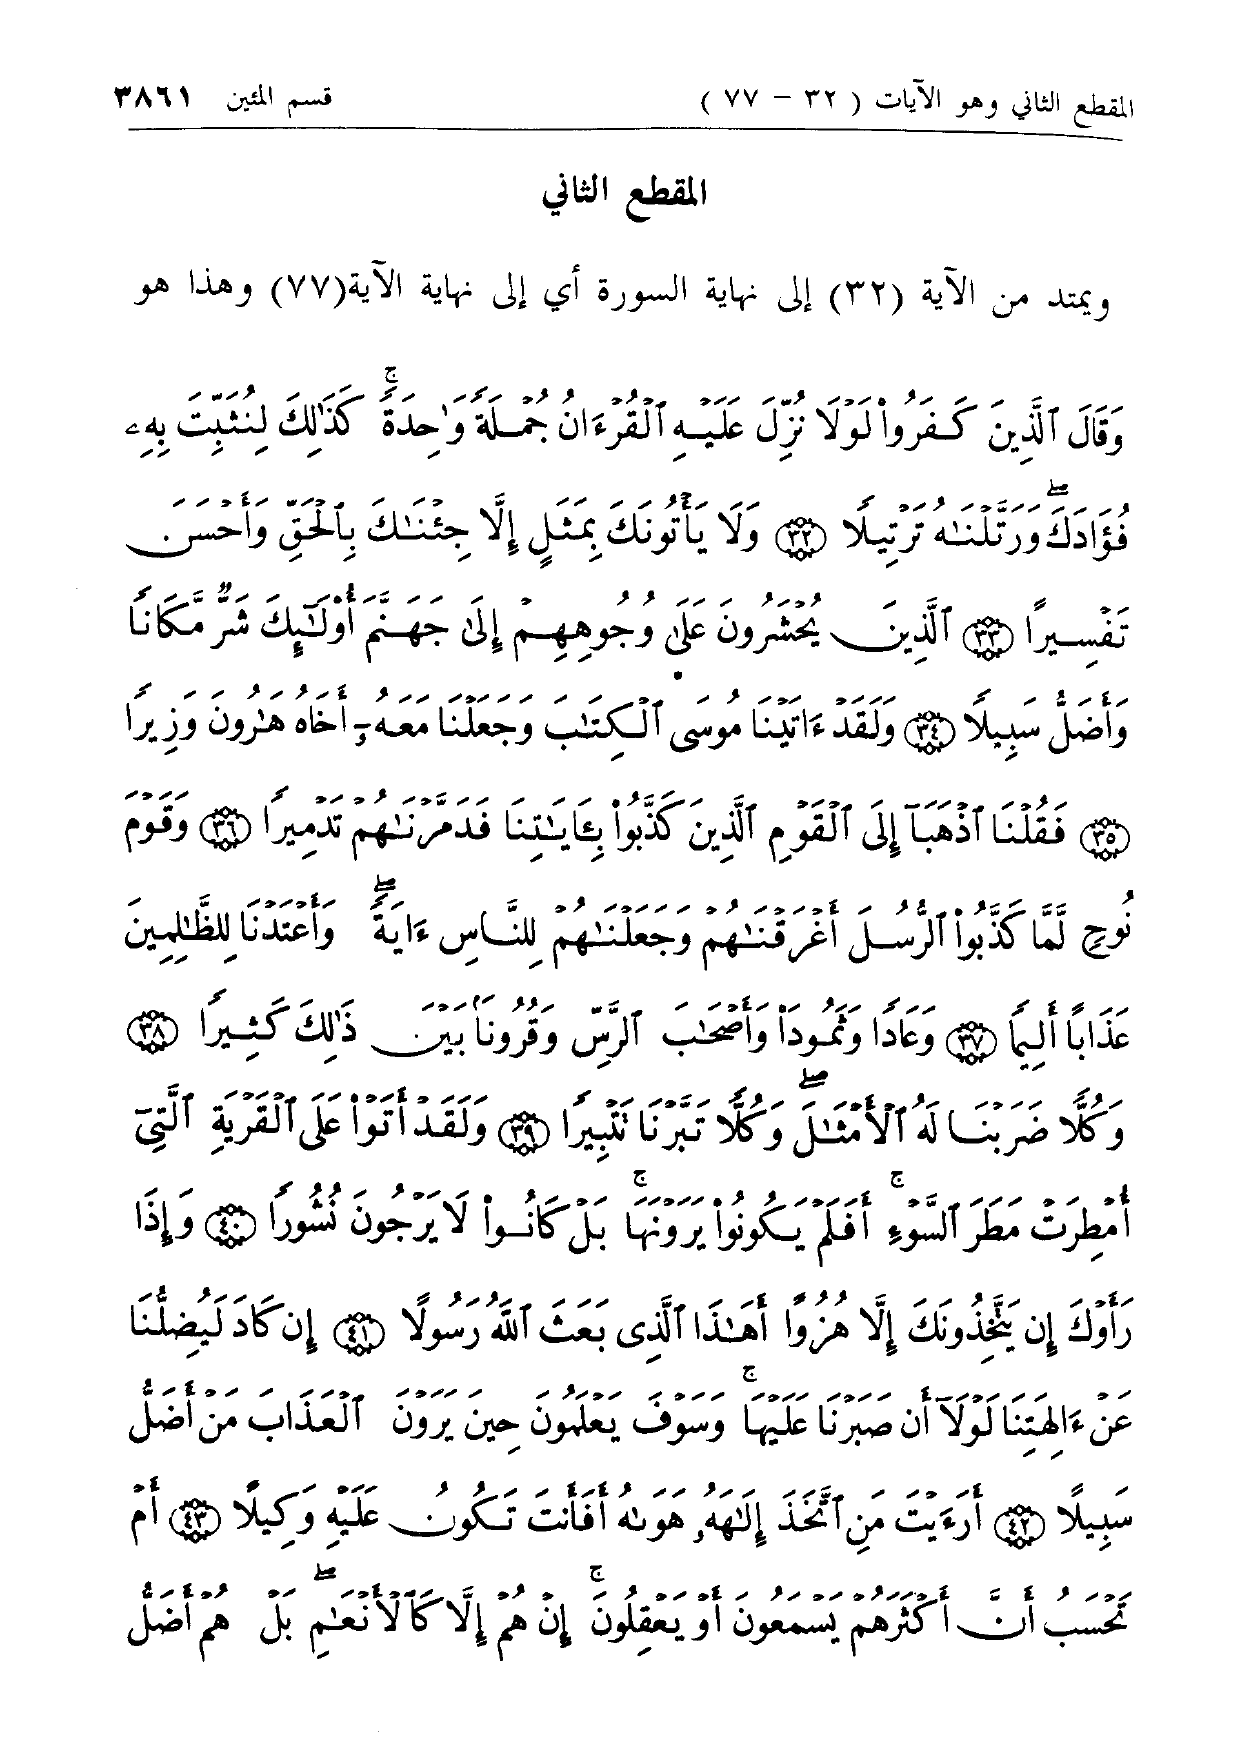 المقطع الثاني وهو الآيات ( ٣٢ - ٧٧ ) قسم المئين ٣٨٦١
المقطع الثاني
ويمتد من الآية (٣٢) إلى نهاية السورة أي إلى نهاية الآية(٧٧) وهذا هو
وَقَالَ ٱلَّذِينَ كَفَرُوا۟ لَوْلَا نُزِّلَ عَلَيْهِ ٱلْقُرْءَانُ جُمْلَةً وَٰحِدَةً ۚ كَذَٰلِكَ لِنُثَبِّتَ بِهِۦ
فُؤَادَكَ ۖ وَرَتَّلْنَٰهُ تَرْتِيلًا ﴿٣٢﴾ وَلَا يَأْتُونَكَ بِمَثَلٍ إِلَّا جِئْنَٰكَ بِٱلْحَقِّ وَأَحْسَنَ
تَفْسِيرًا ﴿٣٣﴾ ٱلَّذِينَ يُحْشَرُونَ عَلَىٰ وُجُوهِهِمْ إِلَىٰ جَهَنَّمَ أُو۟لَٰٓئِكَ شَرٌّ مَّكَانًا
وَأَضَلُّ سَبِيلًا ﴿٣٤﴾ وَلَقَدْ ءَاتَيْنَا مُوسَى ٱلْكِتَٰبَ وَجَعَلْنَا مَعَهُۥٓ أَخَاهُ هَٰرُونَ وَزِيرًا
﴿٣٥﴾ فَقُلْنَا ٱذْهَبَآ إِلَى ٱلْقَوْمِ ٱلَّذِينَ كَذَّبُوا۟ بِـَٔايَٰتِنَا فَدَمَّرْنَٰهُمْ تَدْمِيرًا ﴿٣٦﴾ وَقَوْمَ
نُوحٍ لَّمَّا كَذَّبُوا۟ ٱلرُّسُلَ أَغْرَقْنَٰهُمْ وَجَعَلْنَٰهُمْ لِلنَّاسِ ءَايَةً ۖ وَأَعْتَدْنَا لِلظَّٰلِمِينَ
عَذَابًا أَلِيمًا ﴿٣٧﴾ وَعَادًا وَثَمُودَا۟ وَأَصْحَٰبَ ٱلرَّسِّ وَقُرُونًۢا بَيْنَ ذَٰلِكَ كَثِيرًا ﴿٣٨﴾
وَكُلًّا ضَرَبْنَا لَهُ ٱلْأَمْثَٰلَ ۖ وَكُلًّا تَبَّرْنَا تَتْبِيرًا ﴿٣٩﴾ وَلَقَدْ أَتَوْا۟ عَلَى ٱلْقَرْيَةِ ٱلَّتِىٓ
أُمْطِرَتْ مَطَرَ ٱلسَّوْءِ ۚ أَفَلَمْ يَكُونُوا۟ يَرَوْنَهَا ۚ بَلْ كَانُوا۟ لَا يَرْجُونَ نُشُورًا ﴿٤٠﴾ وَإِذَا
رَأَوْكَ إِن يَتَّخِذُونَكَ إِلَّا هُزُوًا أَهَٰذَا ٱلَّذِى بَعَثَ ٱللَّهُ رَسُولًا ﴿٤١﴾ إِن كَادَ لَيُضِلُّنَا
عَنْ ءَالِهَتِنَا لَوْلَآ أَن صَبَرْنَا عَلَيْهَا ۚ وَسَوْفَ يَعْلَمُونَ حِينَ يَرَوْنَ ٱلْعَذَابَ مَنْ أَضَلُّ
سَبِيلًا ﴿٤٢﴾ أَرَءَيْتَ مَنِ ٱتَّخَذَ إِلَٰهَهُۥ هَوَىٰهُ أَفَأَنتَ تَكُونُ عَلَيْهِ وَكِيلًا ﴿٤٣﴾ أَمْ
تَحْسَبُ أَنَّ أَكْثَرَهُمْ يَسْمَعُونَ أَوْ يَعْقِلُونَ ۚ إِنْ هُمْ إِلَّا كَٱلْأَنْعَٰمِ ۖ بَلْ هُمْ أَضَلُّ